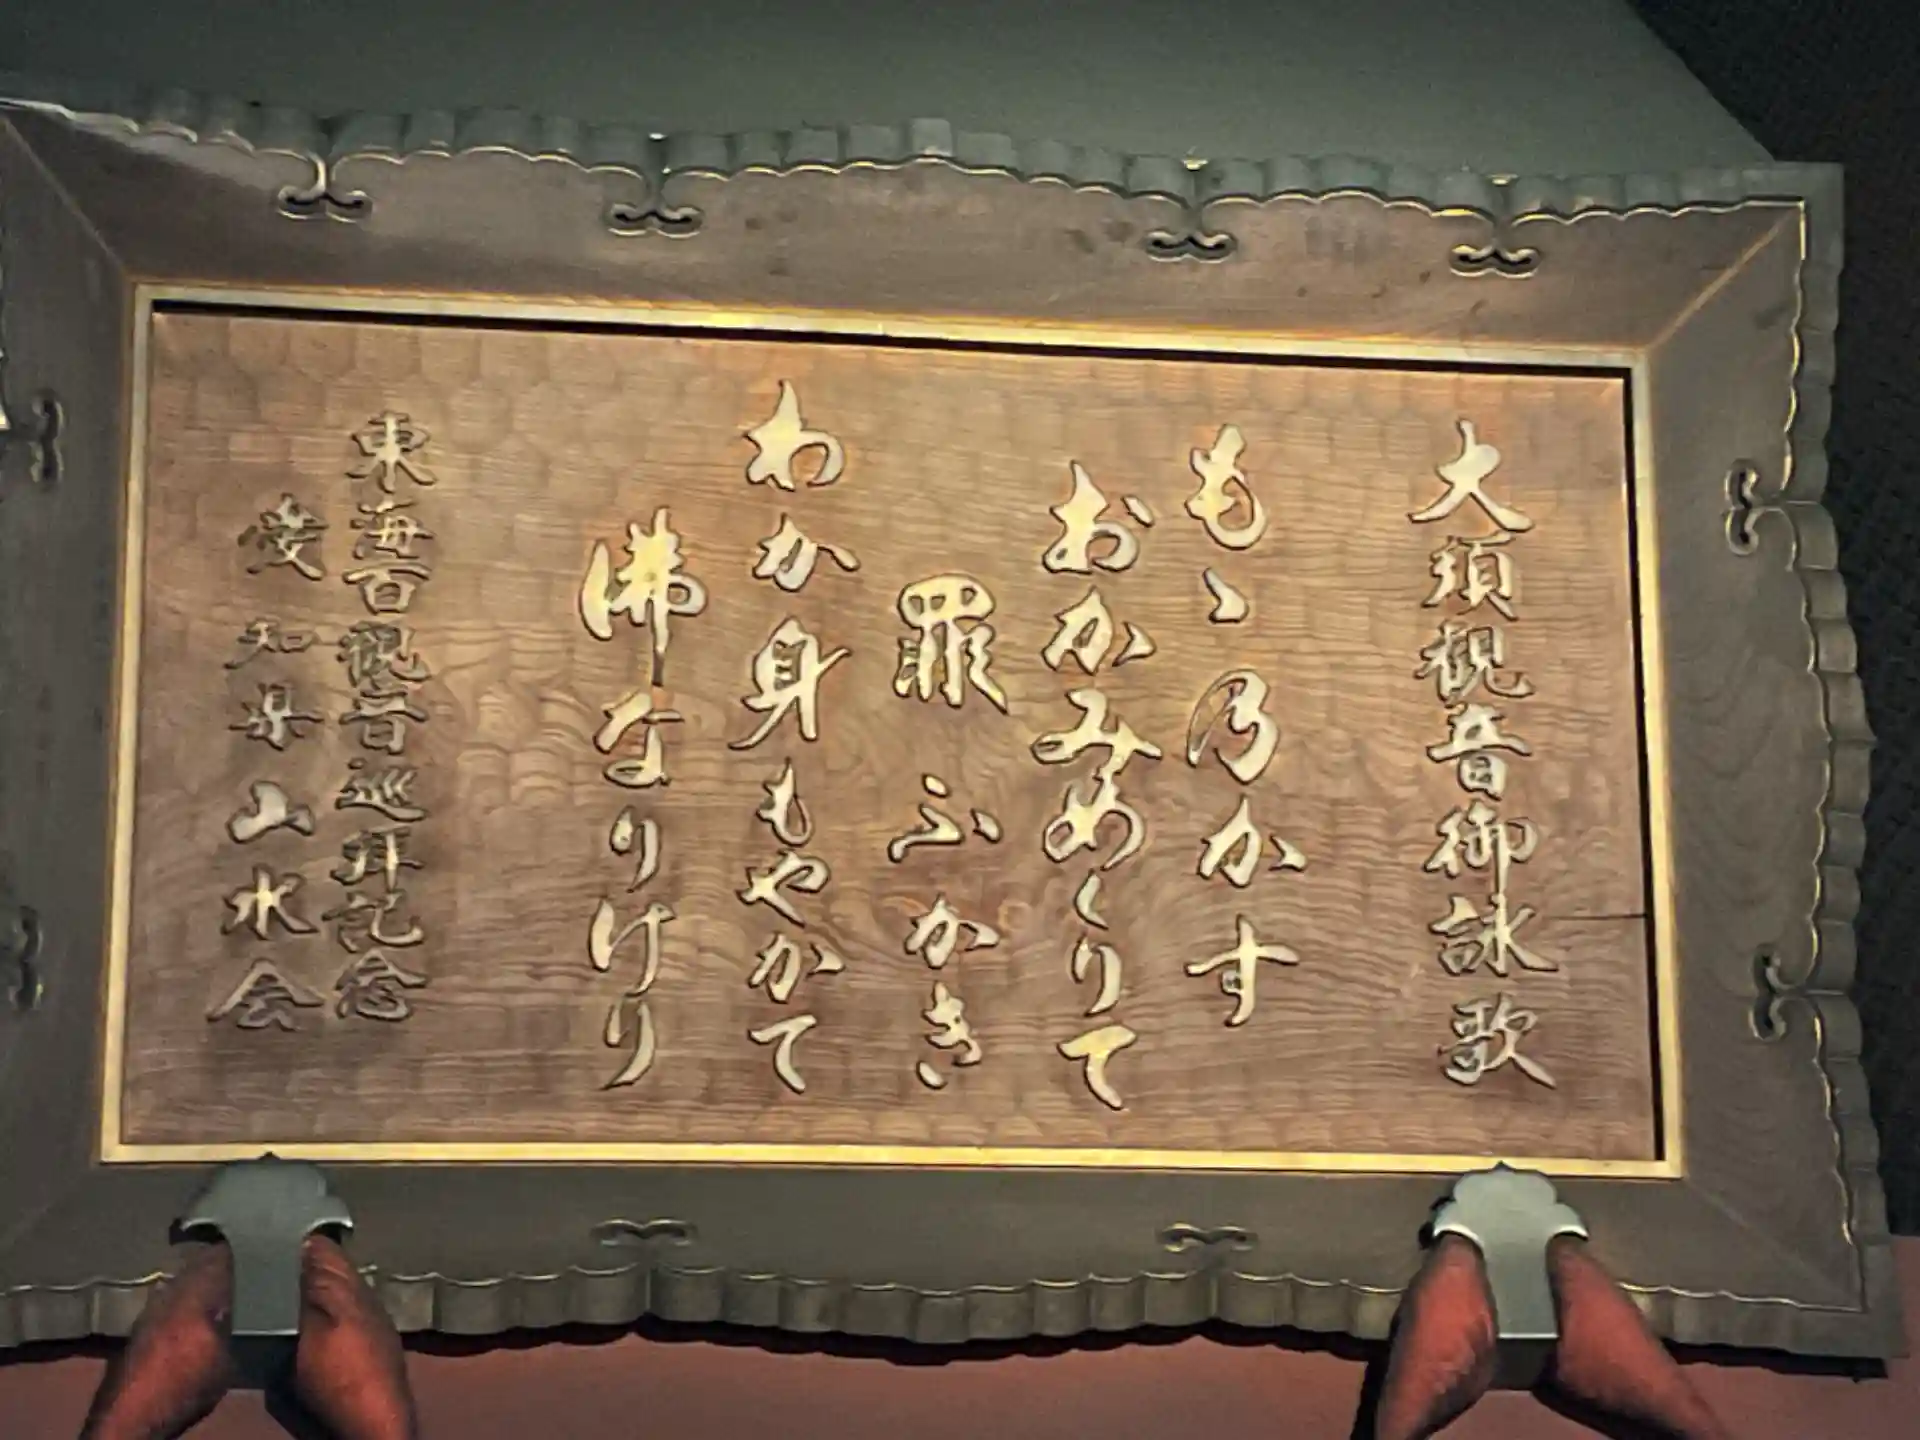 大須観音御詠歌
もゝ乃かす
おかみめくりて
罪ふかき
わか身もやかて
佛なりけり
東海百観音巡拝記念
愛知県山水会